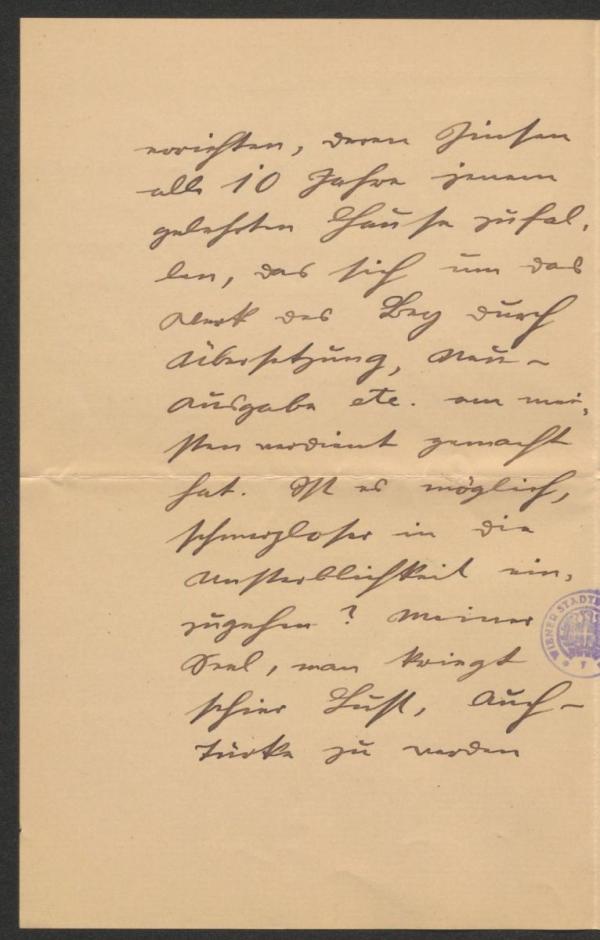 errichten, deren Zinsen
alle 10 Jahre jenem
gelehrten Hause zufal-
len, das sich um das
Werk des Bey durch
Übersetzung, Neu-
ausgabe etc. am mei-
sten verdient gemacht
hat. Ist es möglich,
schmerzloser in die
Unsterblichkeit ein-
zugehen? Meiner
Seel, man kriegt
schier Lust, Auch-
türke zu werden
WIENER STADTB